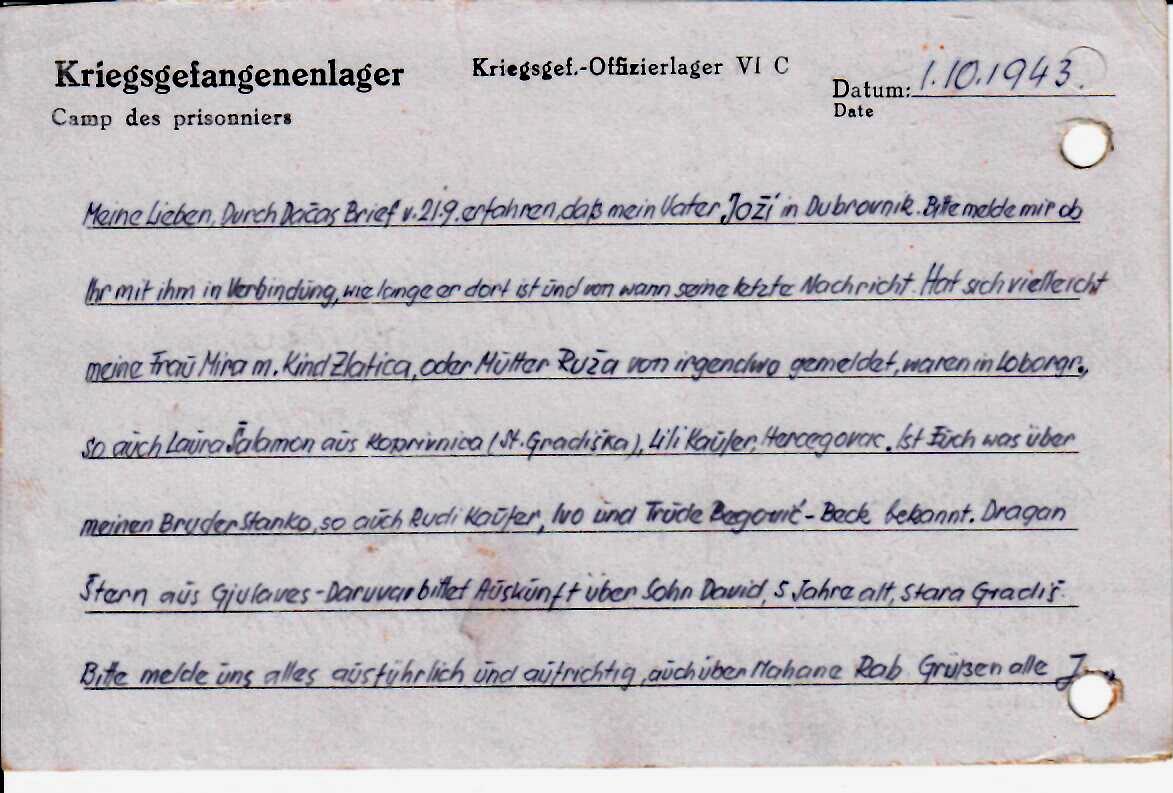 Kriegsgefangenenlager
Camp des prisonniers
Kriegsgef.-Offizierlager VI C
Datum: 1.10.1943.
Date
Meine Lieben, Durch Dačas Brief v. 21.9. erfahren, daß mein Vater „Joži" in Dubrovnik. Bitte melde mir ob
Ihr mit ihm in Verbindung, wie lange er dort ist und von wann seine letzte Nachricht. Hat sich vielleicht
meine Frau Mira m. Kind Zlatica, oder Mutter Ruža von irgendwo gemeldet, waren in Loborgr.,
so auch Laura Šalamon aus Koprivnica (St. Gradiška), Lili Kaufer, Hercegovac. Ist Euch was über
meinen Bruder Stanko, so auch Rudi Kaufer, Ivo und Trude Begović-Beck bekannt. Dragan
Štern aus Gjulaves-Daruvar bittet Auskunft über Sohn David, 5 Jahre alt, Stara Gradiš.
Bitte melde uns alles ausführlich und aufrichtig, auch über Mahane Rab Grüßen alle